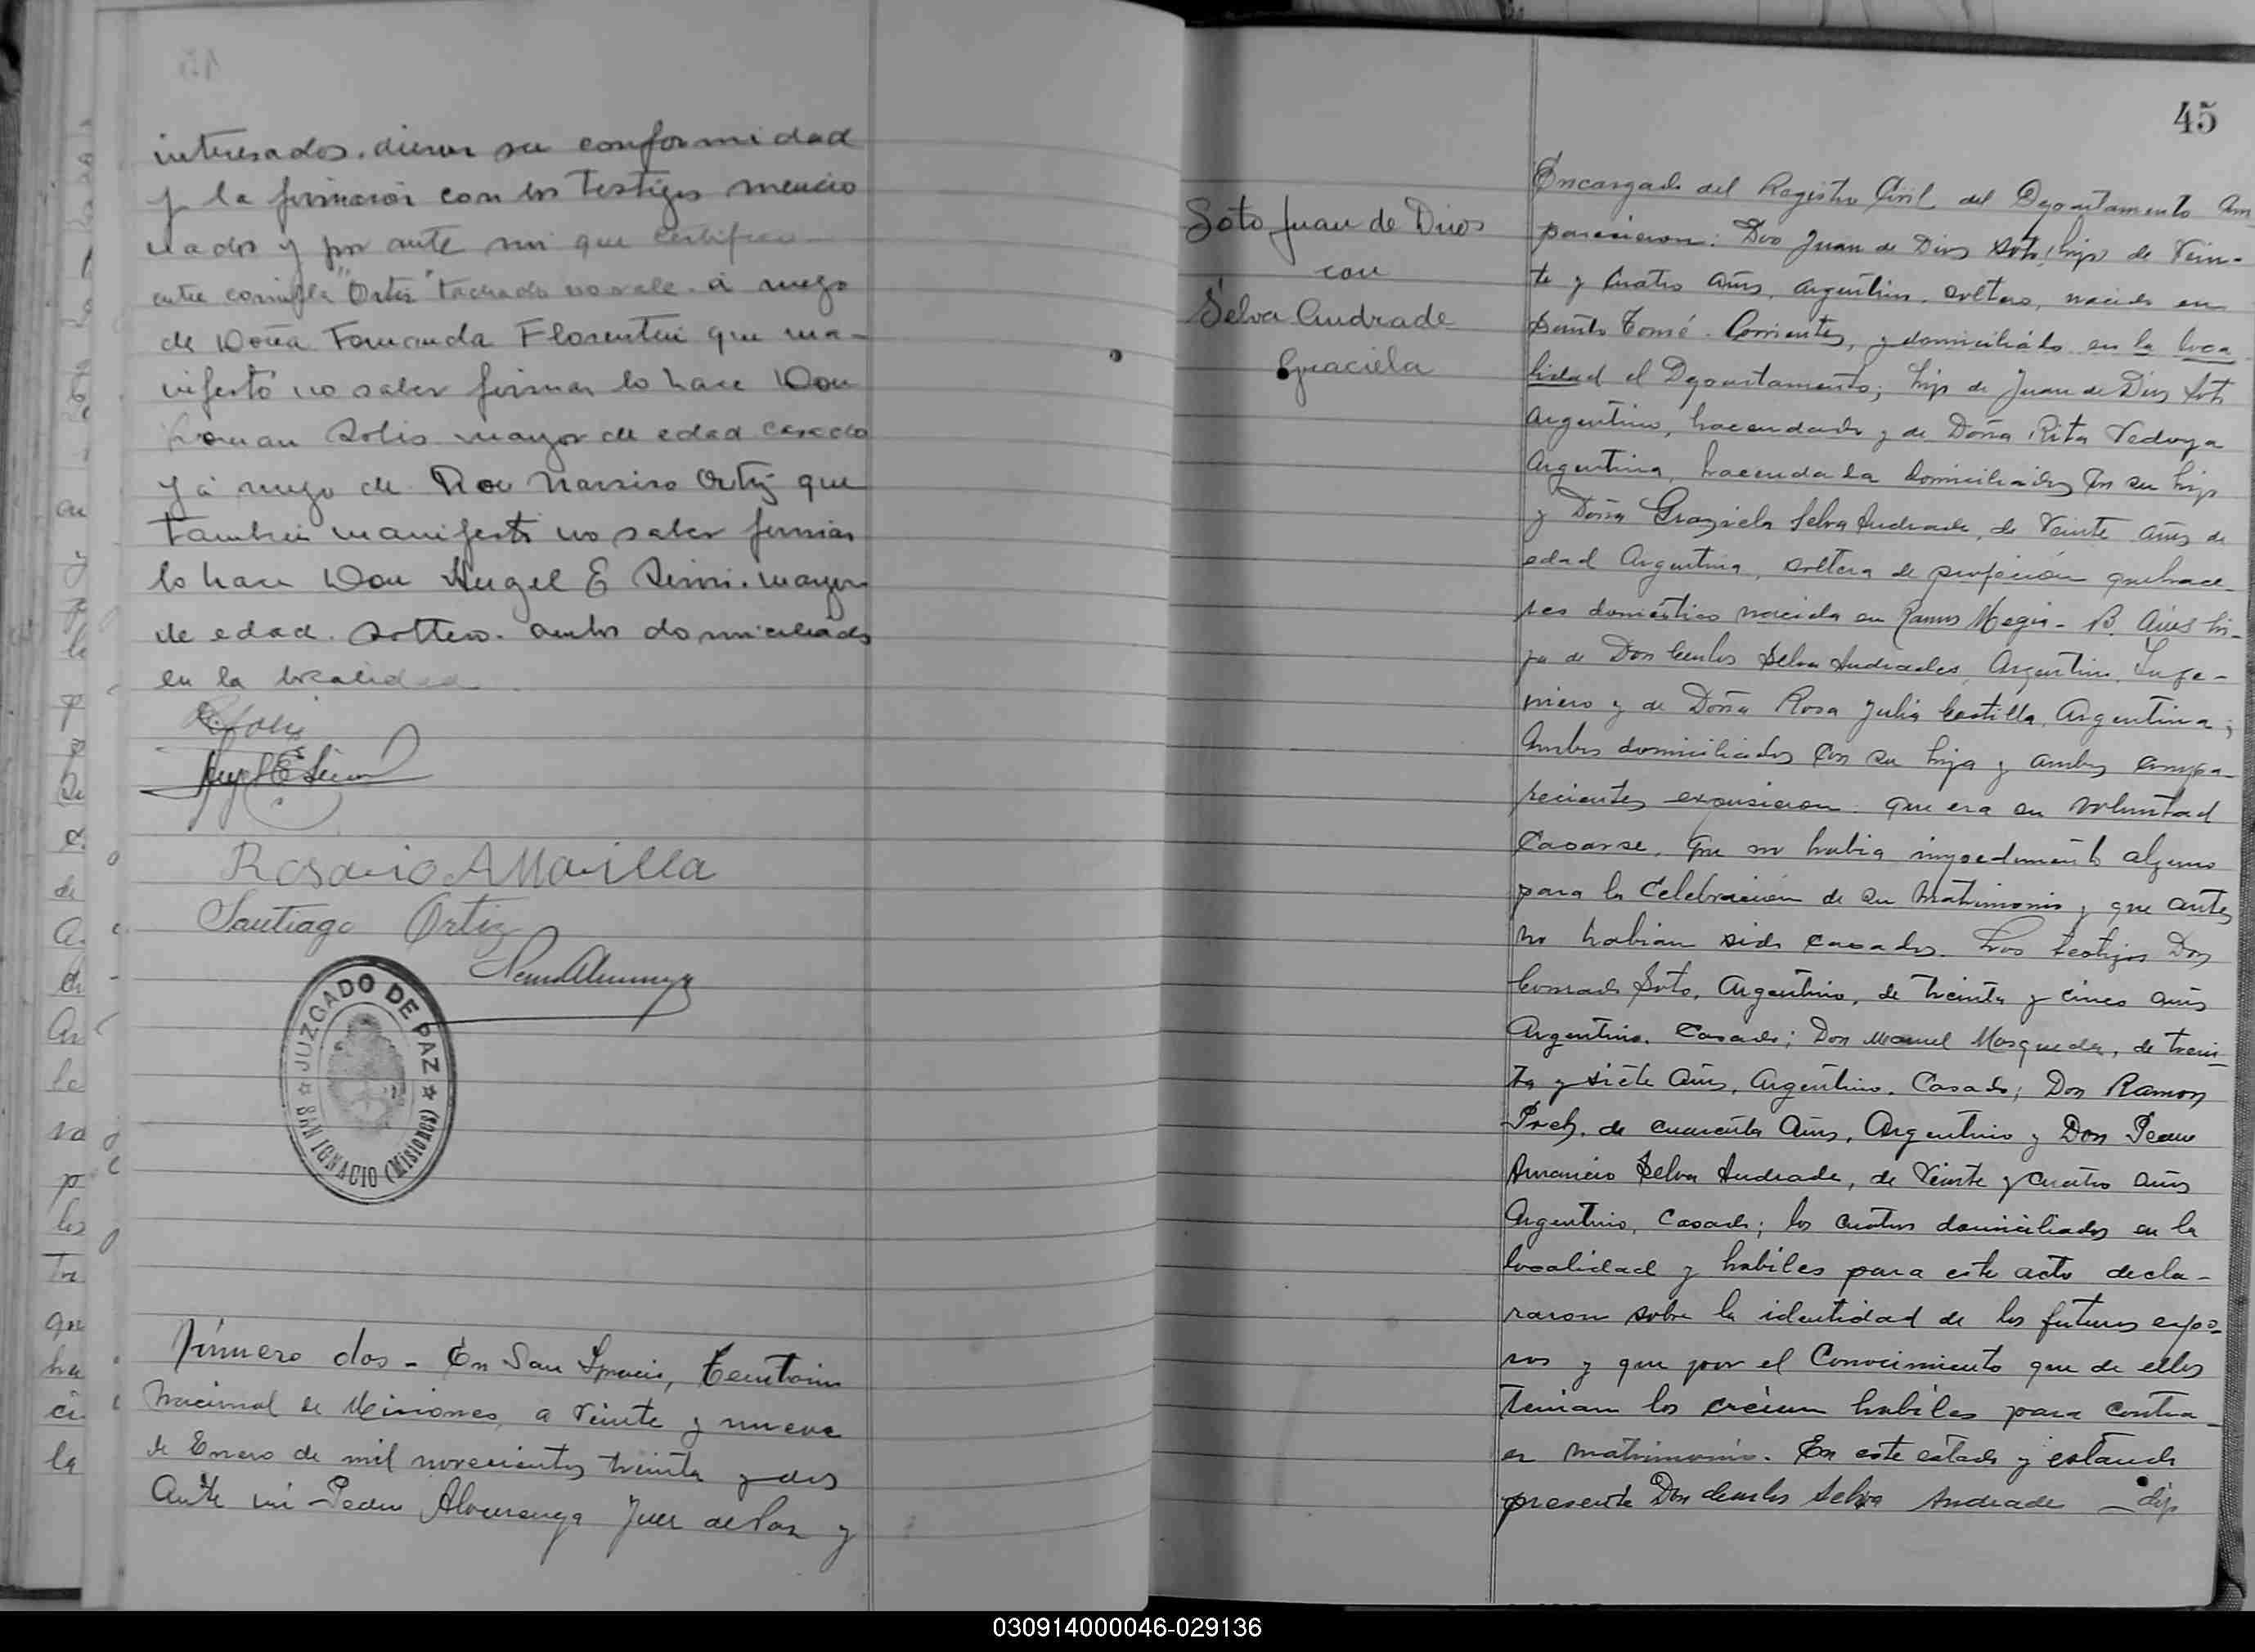 interesados. dieron su conformidad
y la firmaron con los Testigos mencio
nados y por ante mi que certifico -
entre comilla "Ortiz" tachado no vale. á ruego
de Doña Fernanda Florentin que ma-
nifestó no saber firmar lo hace Don
Roman Solis mayor de edad casado
y á ruego de Narciso Ortiz que
tambien manifestó no saber firmar
lo hace Don Angel E mayor
de edad. soltero. ambos domiciliados
en la localidad
R. Solis
Angel E
Rosario A Marilla
Santiago Ortiz
Pedro Alvarenga
JUZGADO DE PAZ
SAN IGNACIO (Misiones)
Número dos - En San Ignacio, Territorio
Nacional de Misiones, a Veinte y nueve
de Enero de mil novecientos treinta y dos
Ante mi Pedro Alvarenga Juez de Paz y
45
Soto Juan de Dios
con
Selva Andrade
Graciela
Encargado del Registro Civil del Departamento Com
parecieron: Don Juan de Dios Soto, hijo de Vein-
te y Cuatro años, argentino, soltero, nacido en
Santo Tomé - Corrientes, y domiciliado en la loca
lidad el Departamento; hijo de Juan de Dios Soto
Argentino, hacendado y de Doña Rita Vedoya
Argentina, hacendada domiciliados con su hijo
y Doña Graziela Selva Andrade, de Veinte años de
edad Argentina, soltera de profesión quehace-
res domésticos nacida en Ramos Megia - B. Aires hi-
ja de Don Carlos Selva Andrade, Argentino, Inge-
niero y de Doña Rosa Julia Castilla, Argentina;
Ambos domiciliados con su hija y ambos compa-
recientes expusieron: que era su voluntad
Casarse, que no habia impedimento alguno
para la Celebración de su Matrimonio y que antes
no habian sido casados. Los testigos Don
Conrado Soto, Argentino, de treinta y cinco años
Argentino, Casado; Don Manuel Mosqueda, de trein-
ta y siete años, Argentino, Casado; Don Ramon
de cuarenta años, Argentino y Don Pedro
Amancio Selva Andrade, de Veinte y cuatro años
Argentino, Casado; los cuatro domiciliados en la
localidad y habiles para este acto decla-
raron sobre la identidad de los futuros espo-
sos y que por el Conocimiento que de ellos
tenian los creian habiles para contra-
er matrimonio. En este estado y estando
presente Don Carlos Selva Andrade - dijo
030914000046-029136